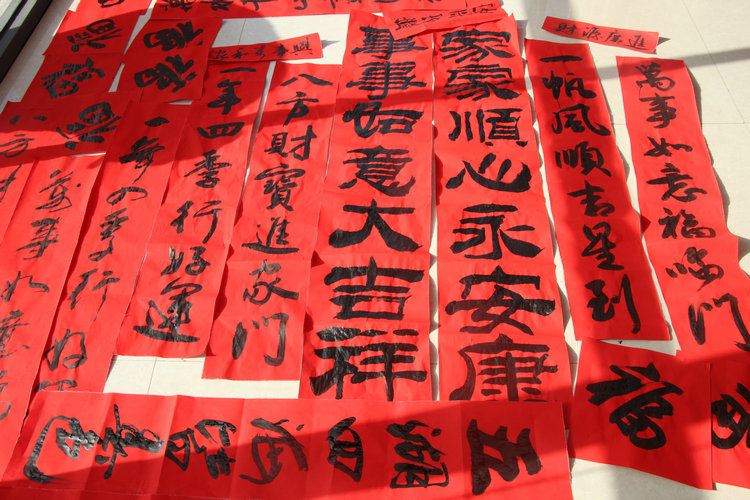 財源廣進
萬事如意福臨門
一帆風順吉星到
家家順心永安康
事事如意大吉祥
八方財寶進家門
一年四季行好運
一年四季行好運
萬事如意
八方
五湖四海皆春色
福
福